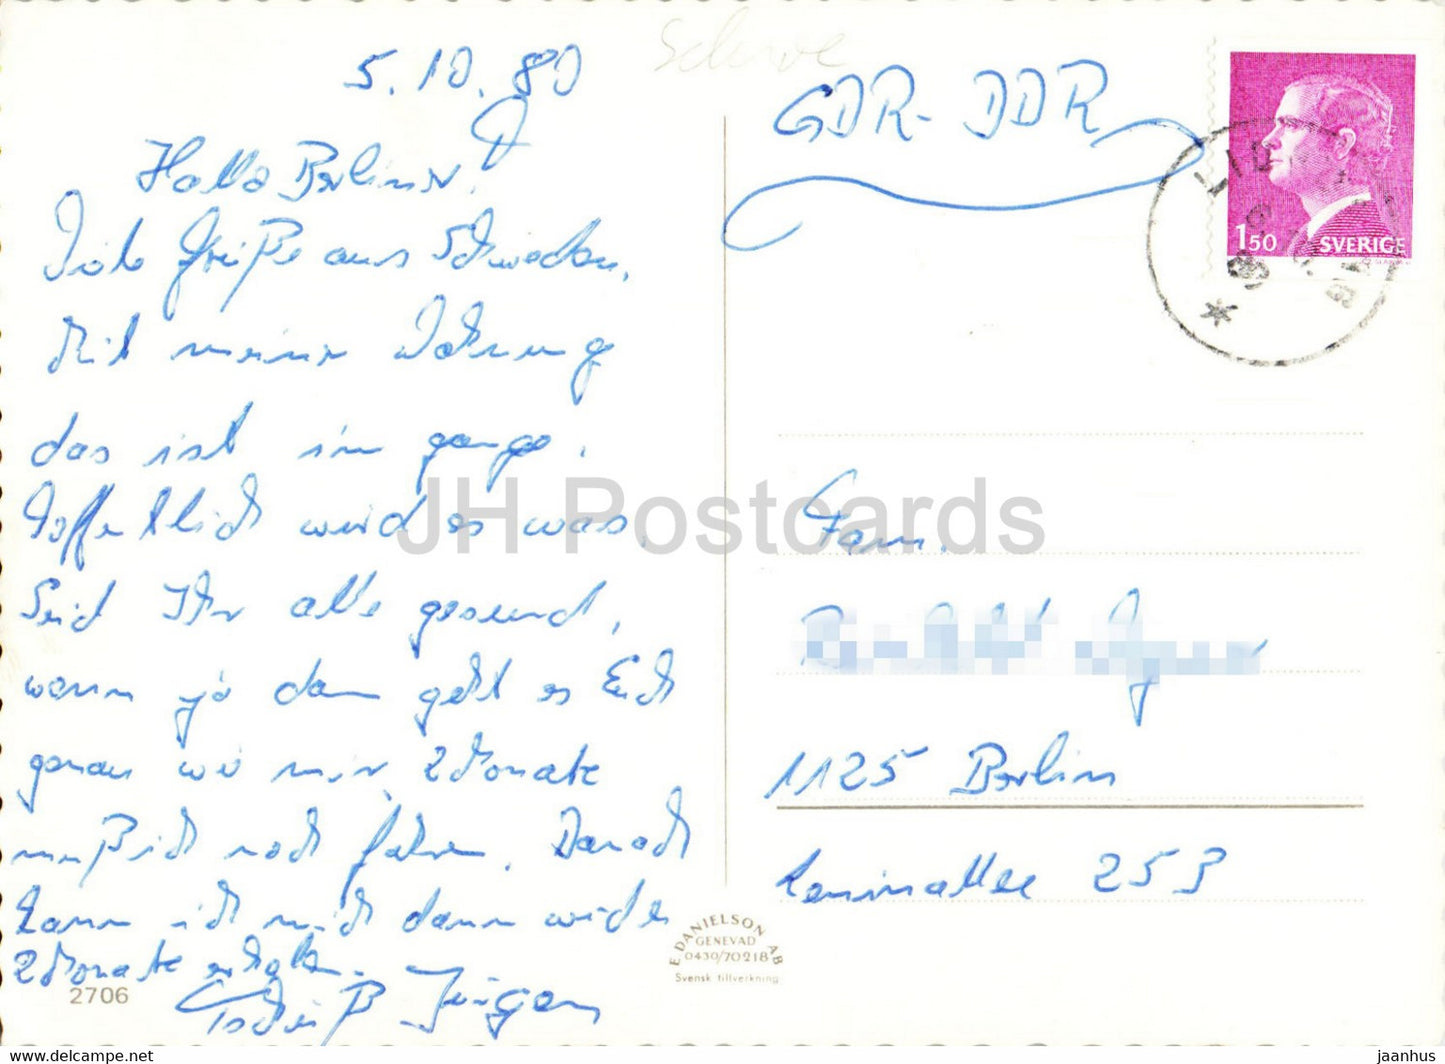 Schwe
5.10.80
Hallo Berliner!
Viele Grüße aus Schweden.
Mit meiner Wohnung
das ist im gange.
Hoffentlich wird es was.
Seid Ihr alle gesund,
wenn ja dann geht es Euch
genau wie mir, 2 Monate
muß ich noch fahren. Danach
kann ich mich dann wieder
2 Monate erholen.
Tschüß Jürgen
2706
GDR-DDR
1.50 SVERIGE
Fam.
1125 Berlin
Leninallee 253
E. DANIELSON AB
GENEVAD
0430/70218
Svensk tillverkning
JH Postcards
www.delcampe.net
jaanhus